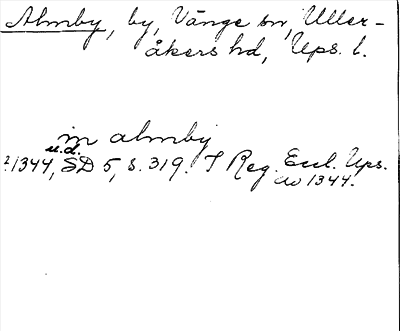 Almby, by, Vänge sn, Uller-
åkers hd, Ups. l.
in almby
u.d.
1344, SD 5, s. 319. I Reg. Eccl. Ups.
av 1344.